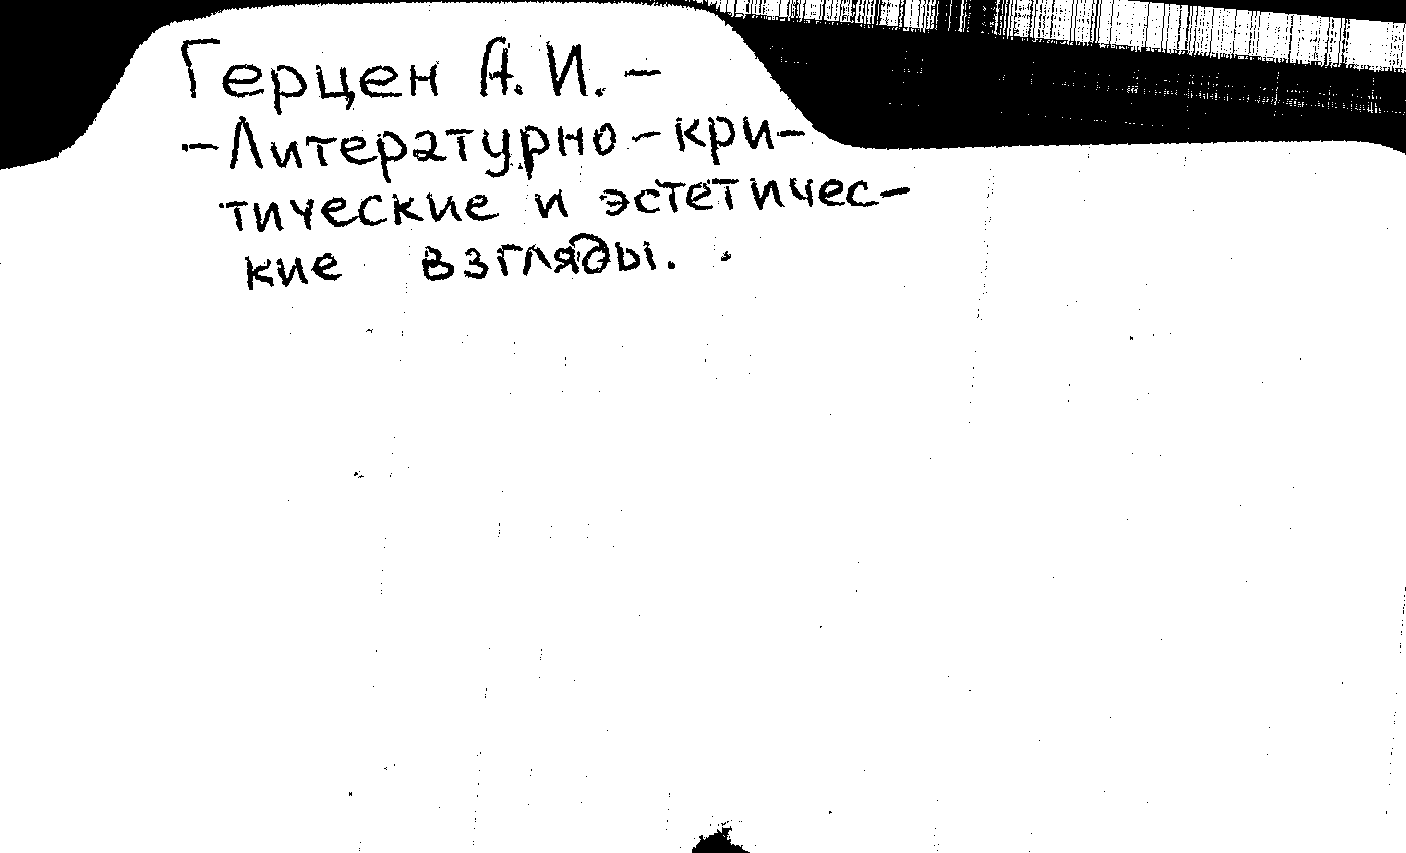 Герцен А. И. –
– Литературно – кри–
тические и эстетичес–
кие взгляды.